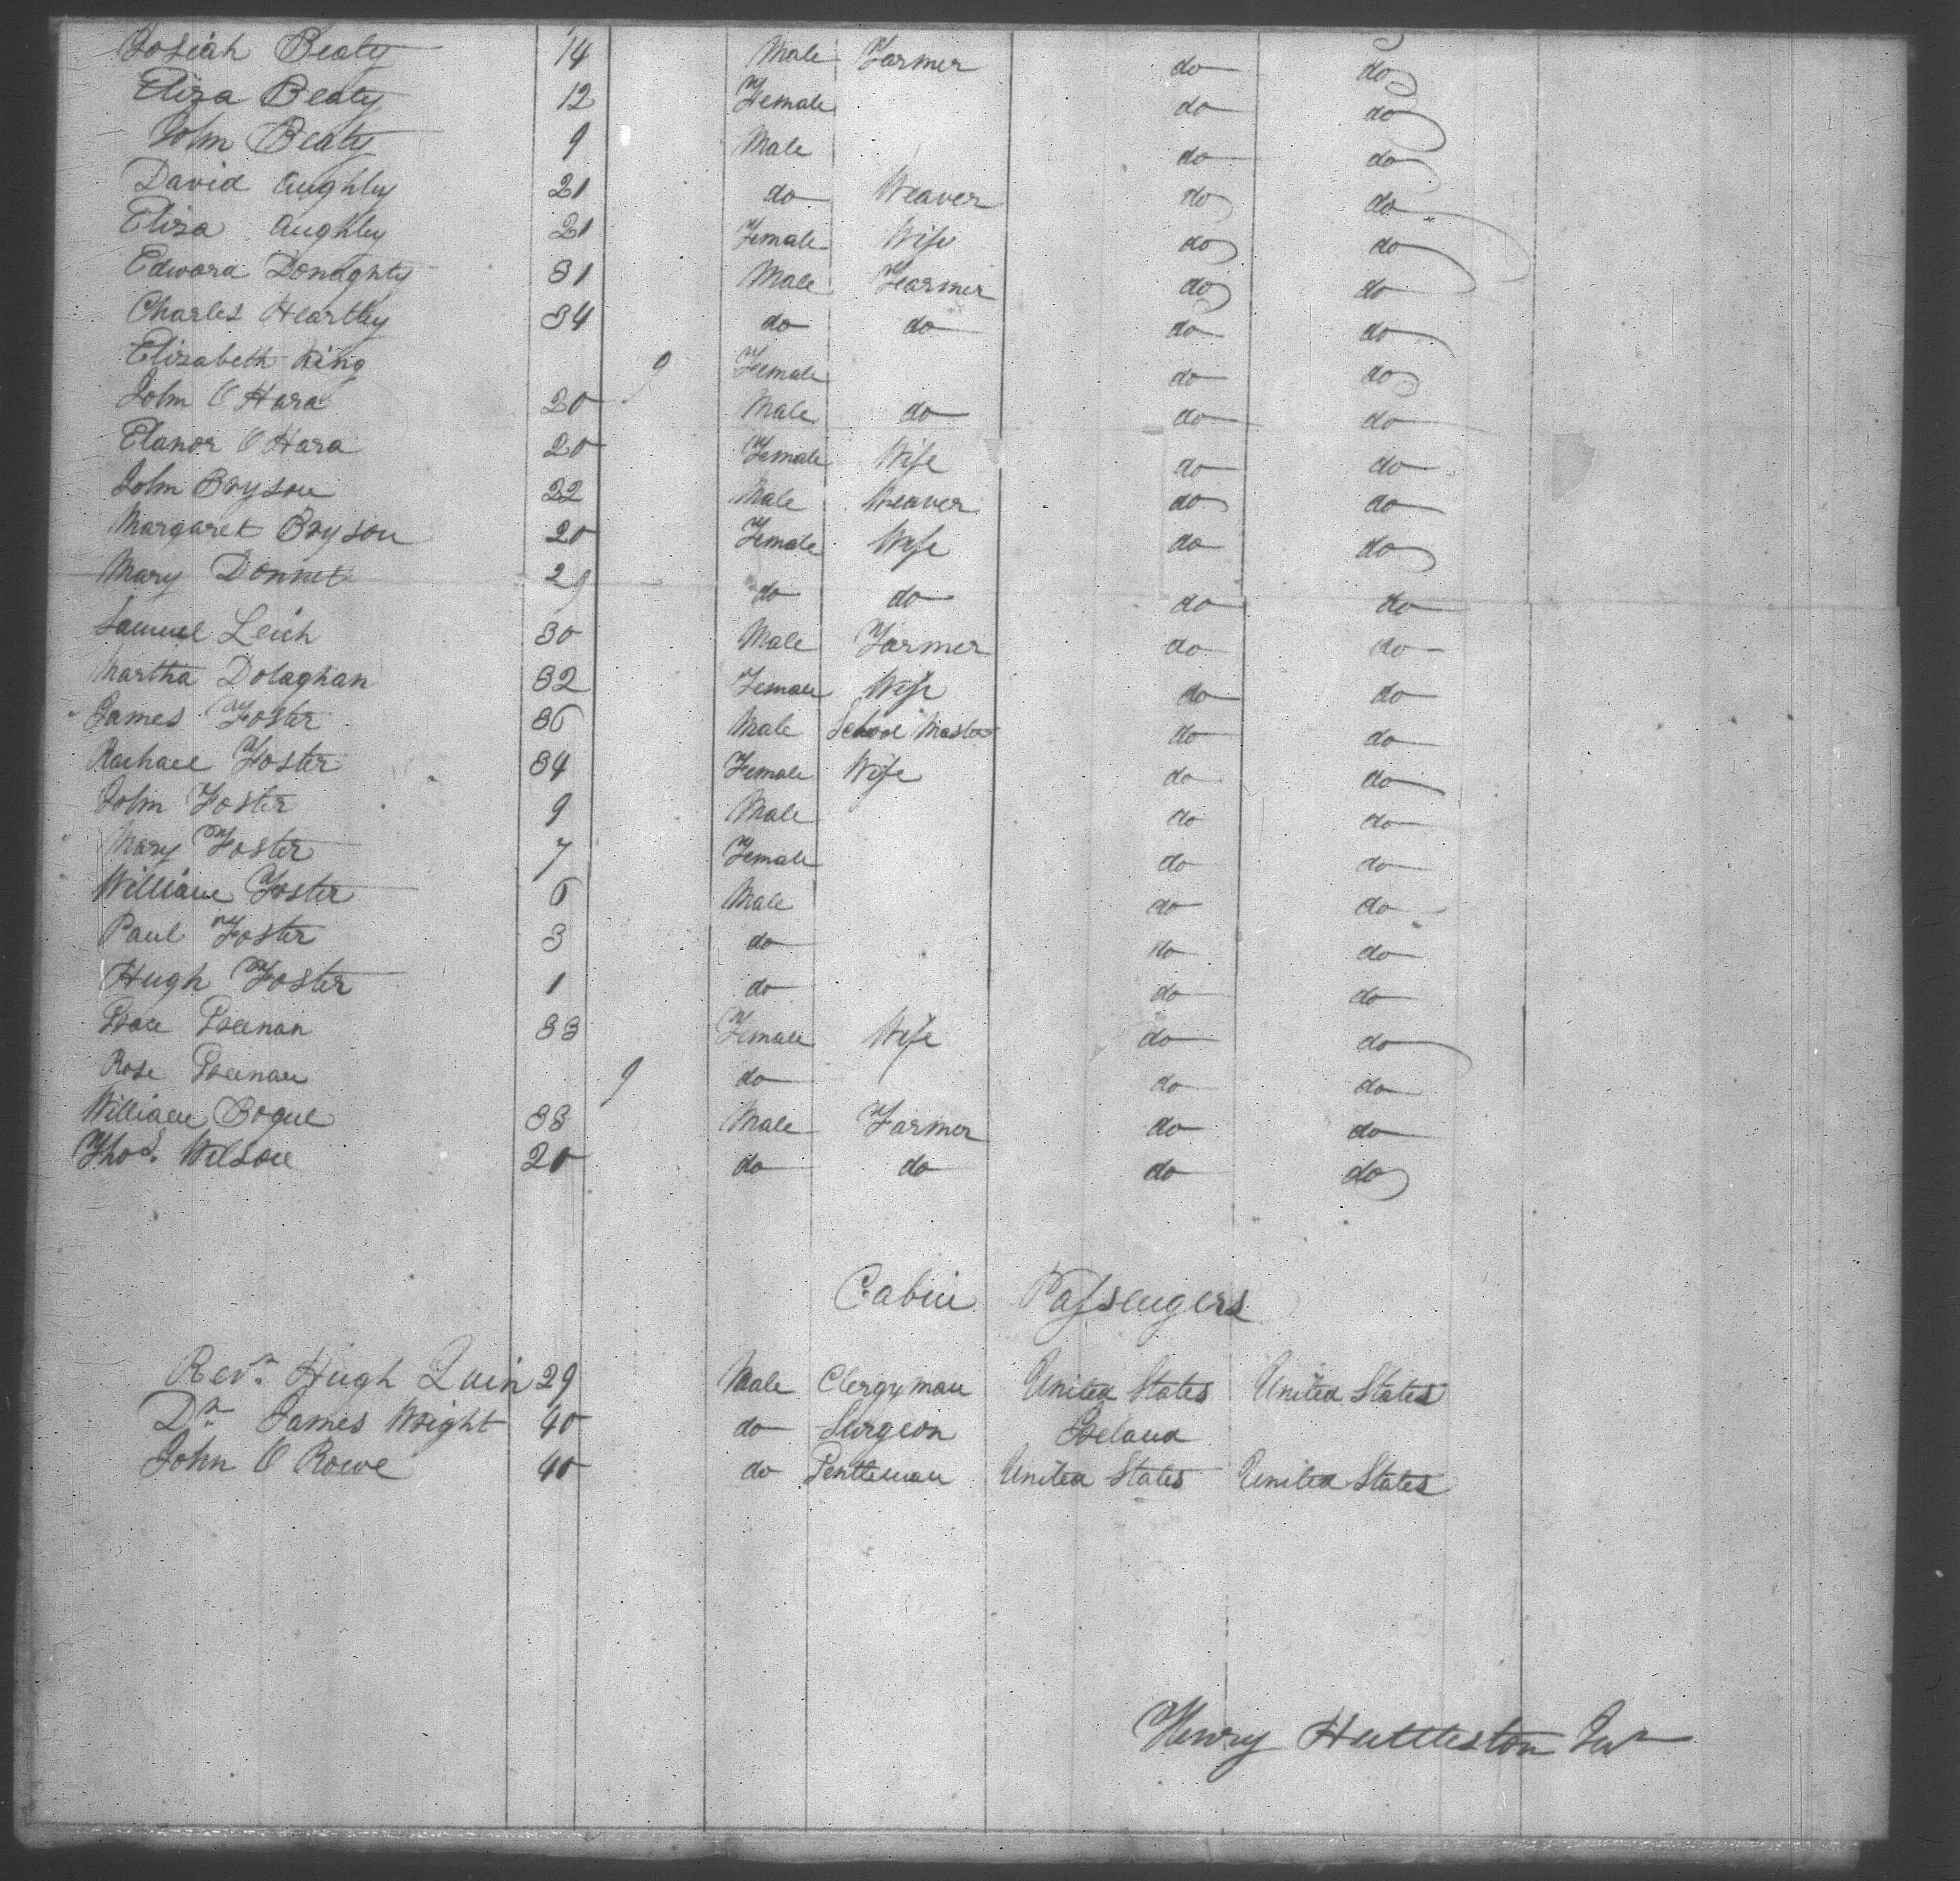 Josiah Beaty 14 Male Farmer do do
Eliza Beaty 12 Female do do
John Beaty 9 Male do do
David Aughley 21 do Weaver do do
Eliza Aughley 21 Female Wife do do
Edward Donaghty 31 Male Fearmer do do
Charles Heartley 34 do do do do
Elizabeth King 9 Female do do
John O Hara 20 Male do do do
Elanor O Hara 20 Female Wife do do
John Bryson 22 Male Weaver do do
Margaret Bryson 20 Female Wife do do
Mary Donnet 21 do do do do
Samuel Leich 30 Male Farmer do do
Martha Dolaghan 32 Female Wife do do
James Foster 36 Male School Master do do
Rachael Foster 34 Female Wife do do
John Foster 9 Male do do
Mary Foster 7 Female do do
William Foster 6 Male do do
Paul Foster 3 do do do
Hugh Foster 1 do do do
33 Female Wife do do
Rose 9 do do do
William Bogue 33 Male Farmer do do
Thos. Wilson 20 do do do do
Cabin Passengers
Revn. Hugh Quin 29 Male Clergyman United States United States
Dr. James Wright 40 do Surgeon Ireland
John O Rowe 40 do Gentleman United States United States
Henry Huttleston Junr